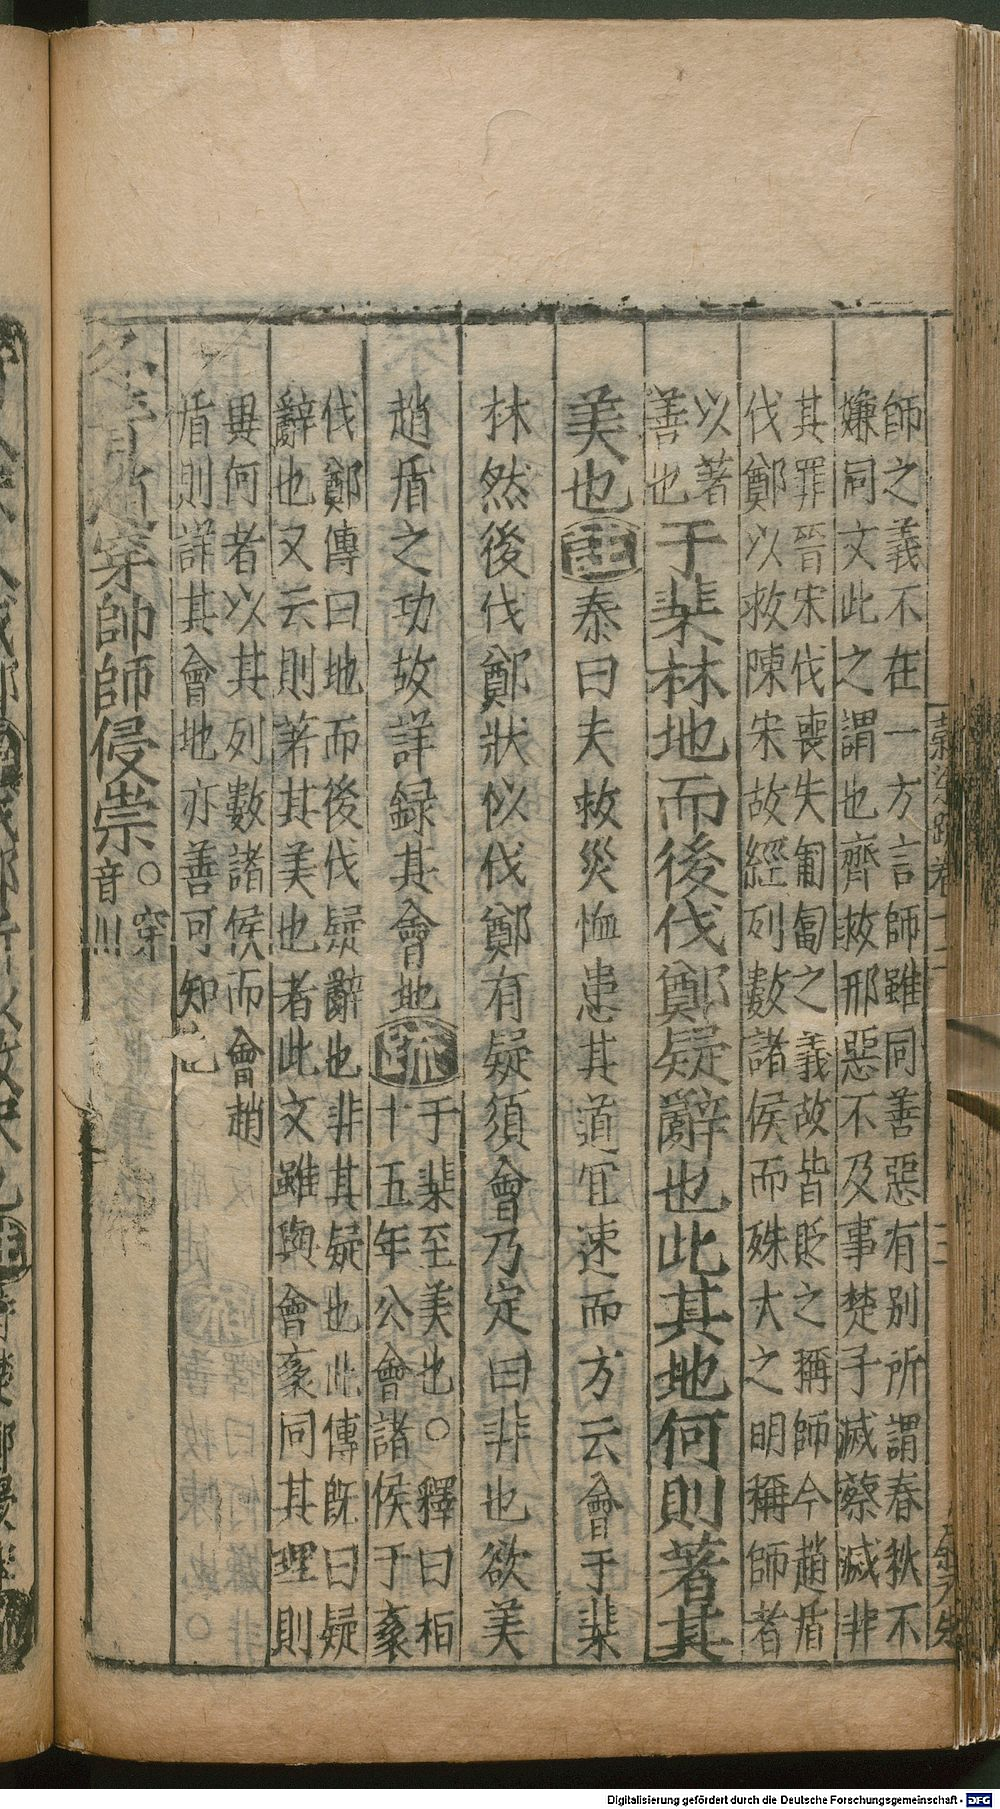 師之義不在一方言師雖同善惡有別所謂春秋不
嫌同文此之謂也齊救邢惡不及事楚子滅蔡滅非
其罪晉宋伐喪失匍匐之義故皆貶之稱師今趙盾
伐鄭以救陳宋故經列數諸侯而殊大之明稱師者
以著
善也
于棐林地而後伐鄭疑辭也此其地何則著其
美也
泰曰夫救災恤患其道宜速而方云會于棐
林然後伐鄭狀似伐鄭有疑須會乃定曰非也欲美
趙盾之功故詳録其會地
疏
于棐至美也○釋曰桓
十五年公會諸侯于袲
伐鄭傳曰地而後伐疑辭也非其疑也此傳既曰疑
辭也又云則著其美也者此文雖與會袲同其理則
異何者以其列數諸侯而會趙
盾則詳其會地亦善可知也
冬晉趙穿帥師侵崇
○穿
音川
Digitalisierung gefördert durch die Deutsche Forschungsgemeinschaft - DFG